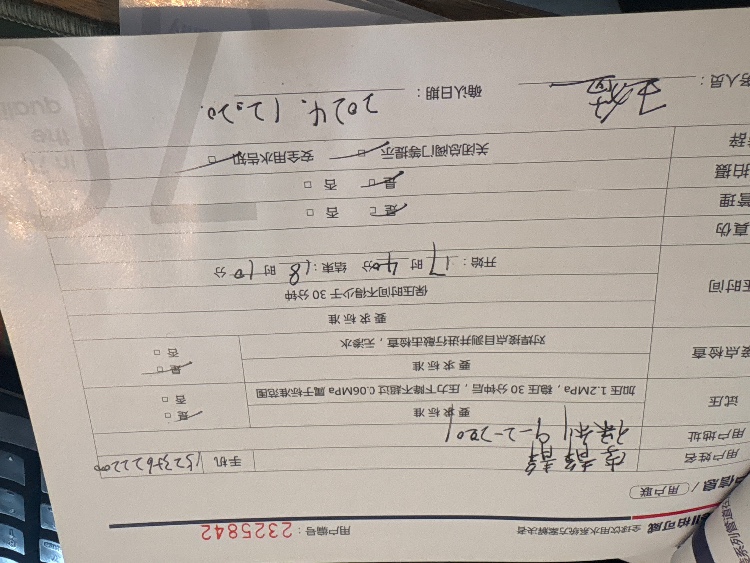 柏可威 全球饮用水系统方案解决者 用户编号：2325842
信息 /（用户联）
用户姓名 手机
用户地址 9-2-2201
试压 要求标准 是
加压1.2MPa，稳压30分钟后，压力下降不超过0.06MPa属于标准范围 否
接点检查 要求标准 是
对焊接点目测并进行敲击检查，无渗水 否
压时间 要求标准
保压时间不得少于30分钟
开始：17时40分 结束：18时10分
真伪
管理 是 否
拍摄 是 否
辞 关闭总阀门等提示 安全用水告知
务人员： 确认日期：2024.12.20.
quali
the
in